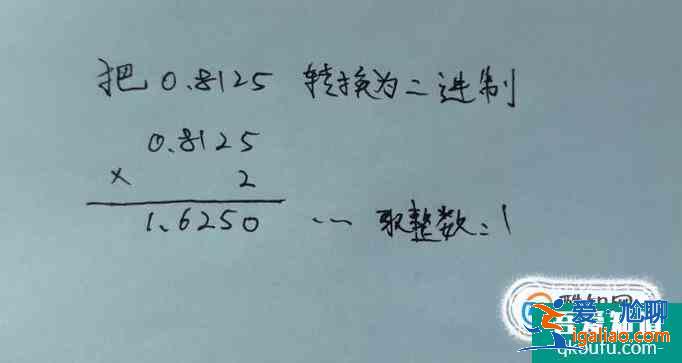 把0.8125 转换为二进制
0.8125
× 2
1.6250 … 取整数:1
爱尴聊
igaoliao.com
qkoufu.com